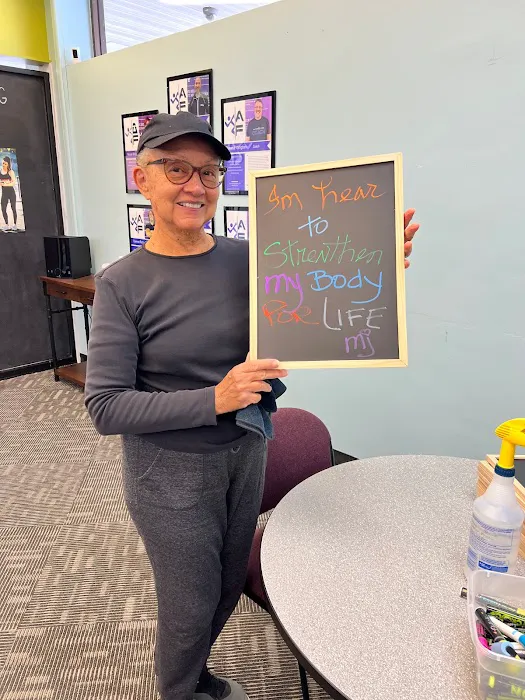 I'm hear
to
Strenthen
my BODY
FOR LIFE
mj